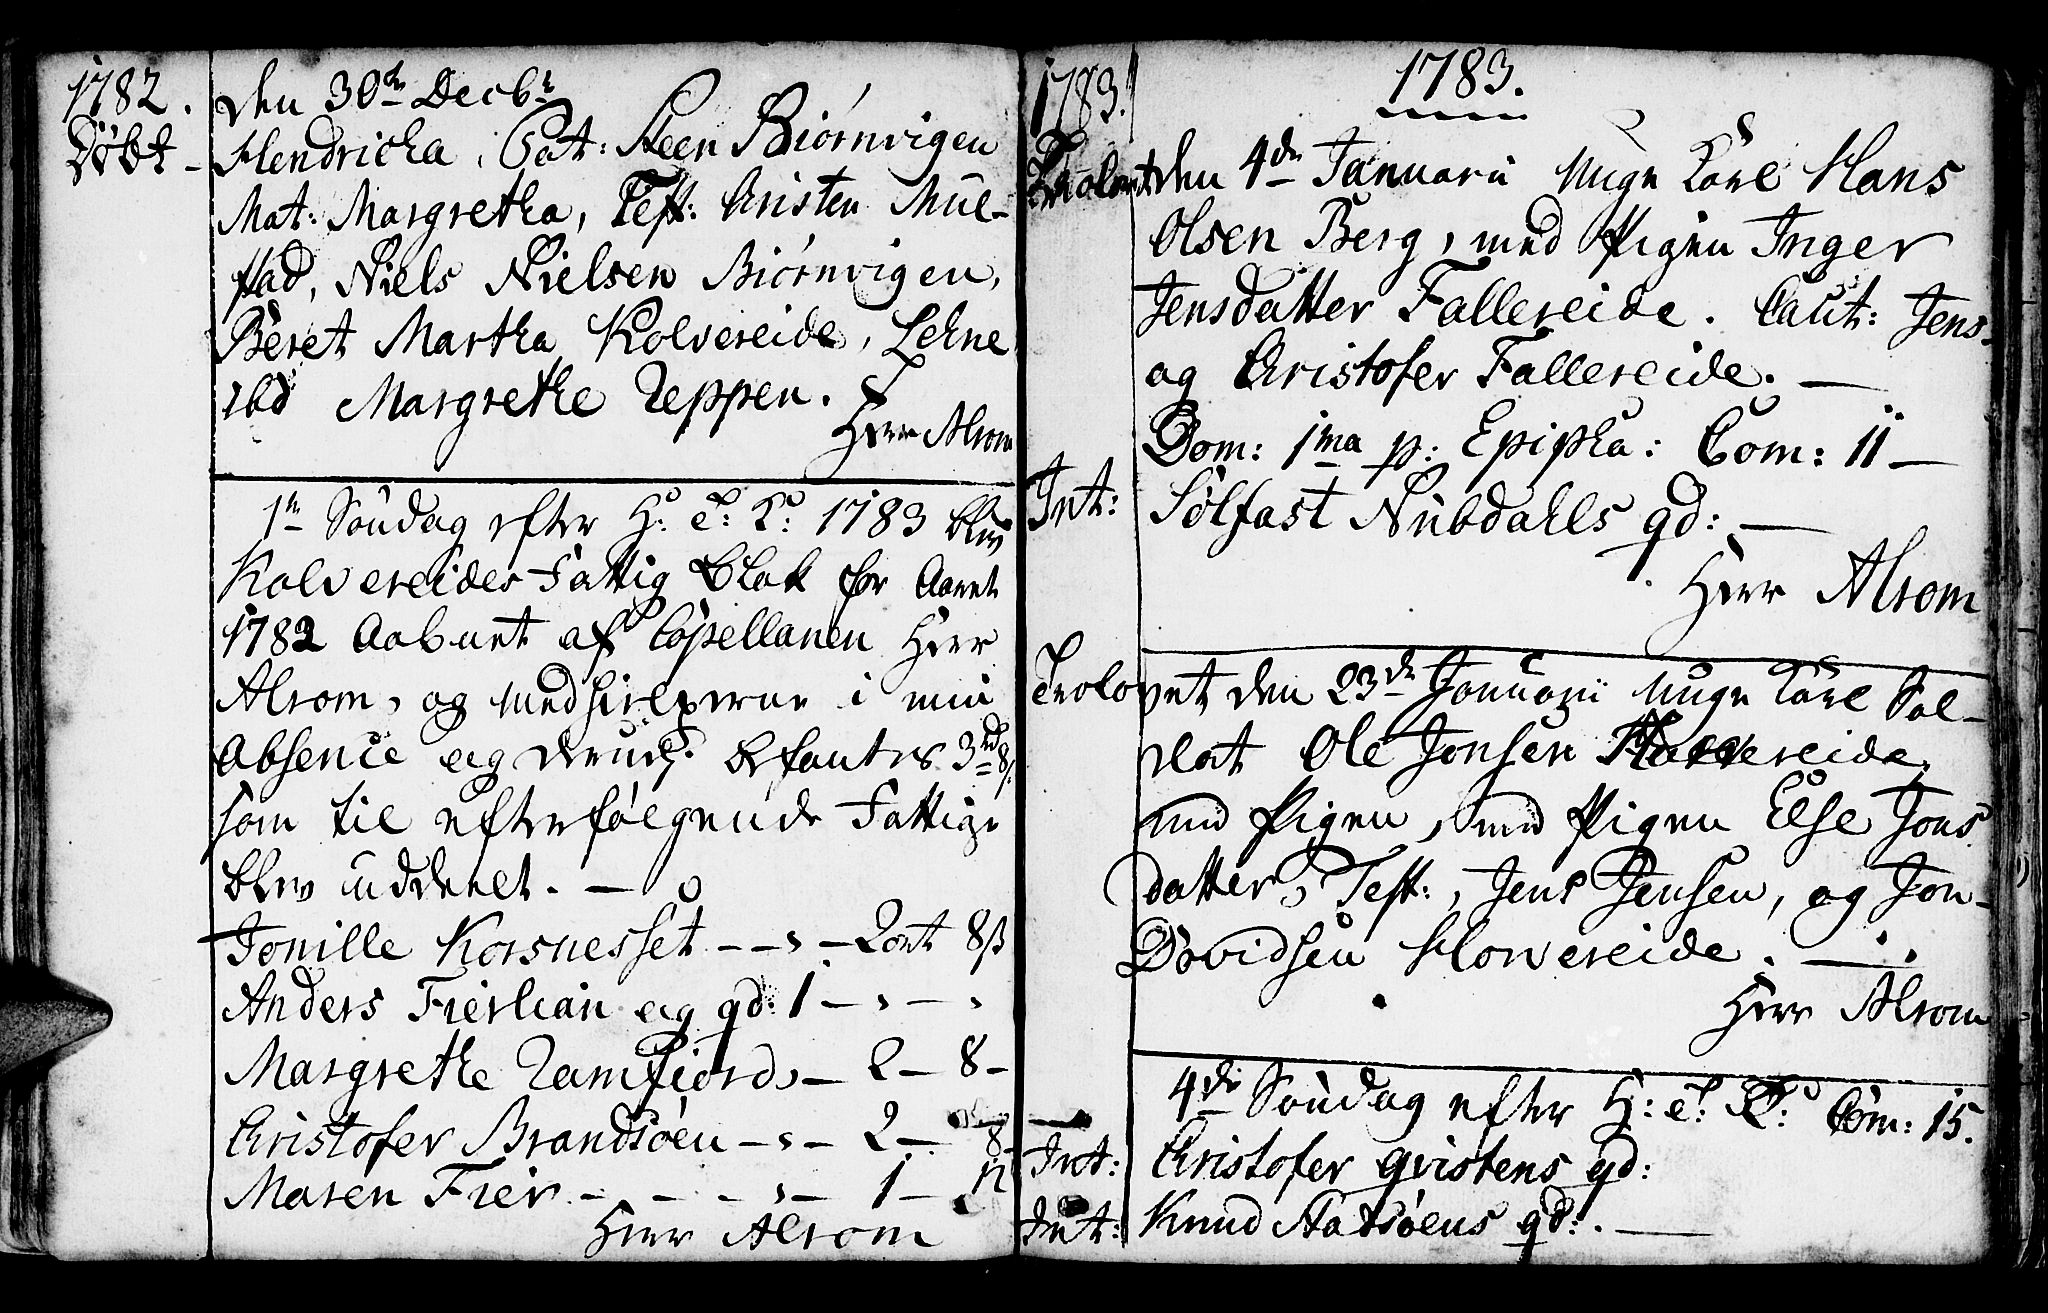 1782.
Døbt -
den 30te Decbr
Hendricha, Pat: Steen Biørnvigen
Mat: Margretha, Test: Christen Mül-
stad, Niels Nielsen Biørnvigen,
Beret Martha Kolvereide, Lehne
ibd Margrethe Teppen.
Herr Alrom
1te Søndag efter H: 3: K: 1783 blev
Kolvereides Fattig Blok for Aaret
1782 Aabnet af Capellanen Herr
Alrom, og Medhielperne i min
Absence og derudj befantes 3rd 8s.
som til efterfølgende Fattige
blev uddeelt. —
Jonille Korsnesset - - „ - 2 ort 8 s
Anders Fierlian og qd: 1 - „ - „
Margrethe Ramfiord, - 2 - 8 -
Christofer Brandsøen - „ - 2 - 8 -
Maren Fier - - - „ - 1 - 12
Herr Alrom
1783.
1783.
Trolovet den 4de Januarii Unge Karl Hans
Olsen Berg, med Pigen Inger
Jensdatter Fallereide. Caut: Jens
og Christofer Fallereide. —
Dom: 1ma p: Epipha: Com: 11 —
Int: Sølfast Nubdahls qd: —
Herr Alrom
Trolovet den 23de Januarii Unge Karl Sol-
dat Ole Jonsen Horvereide,
med Pigen, med Pigen Else Jons
datter, Test:, Jens Jensen, og Jon
Davidsen Horvereide. —
Herr Alrom
4de Søndag efter H: 3: K: Com: 15.
Int: Christofer Qvistens qd:
Int: Knud Stadsøens qd: . —